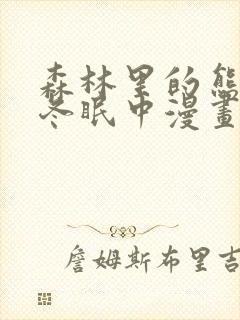 森林里的熊
冬眠中漫畫
詹姆斯布里吉